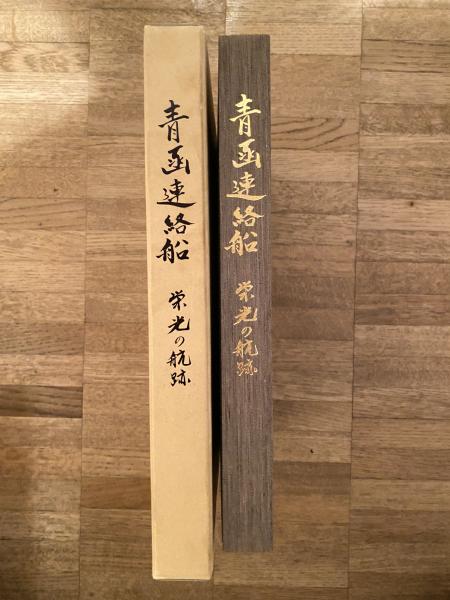 青函連絡船 栄光の航跡
青函連絡船 栄光の航跡